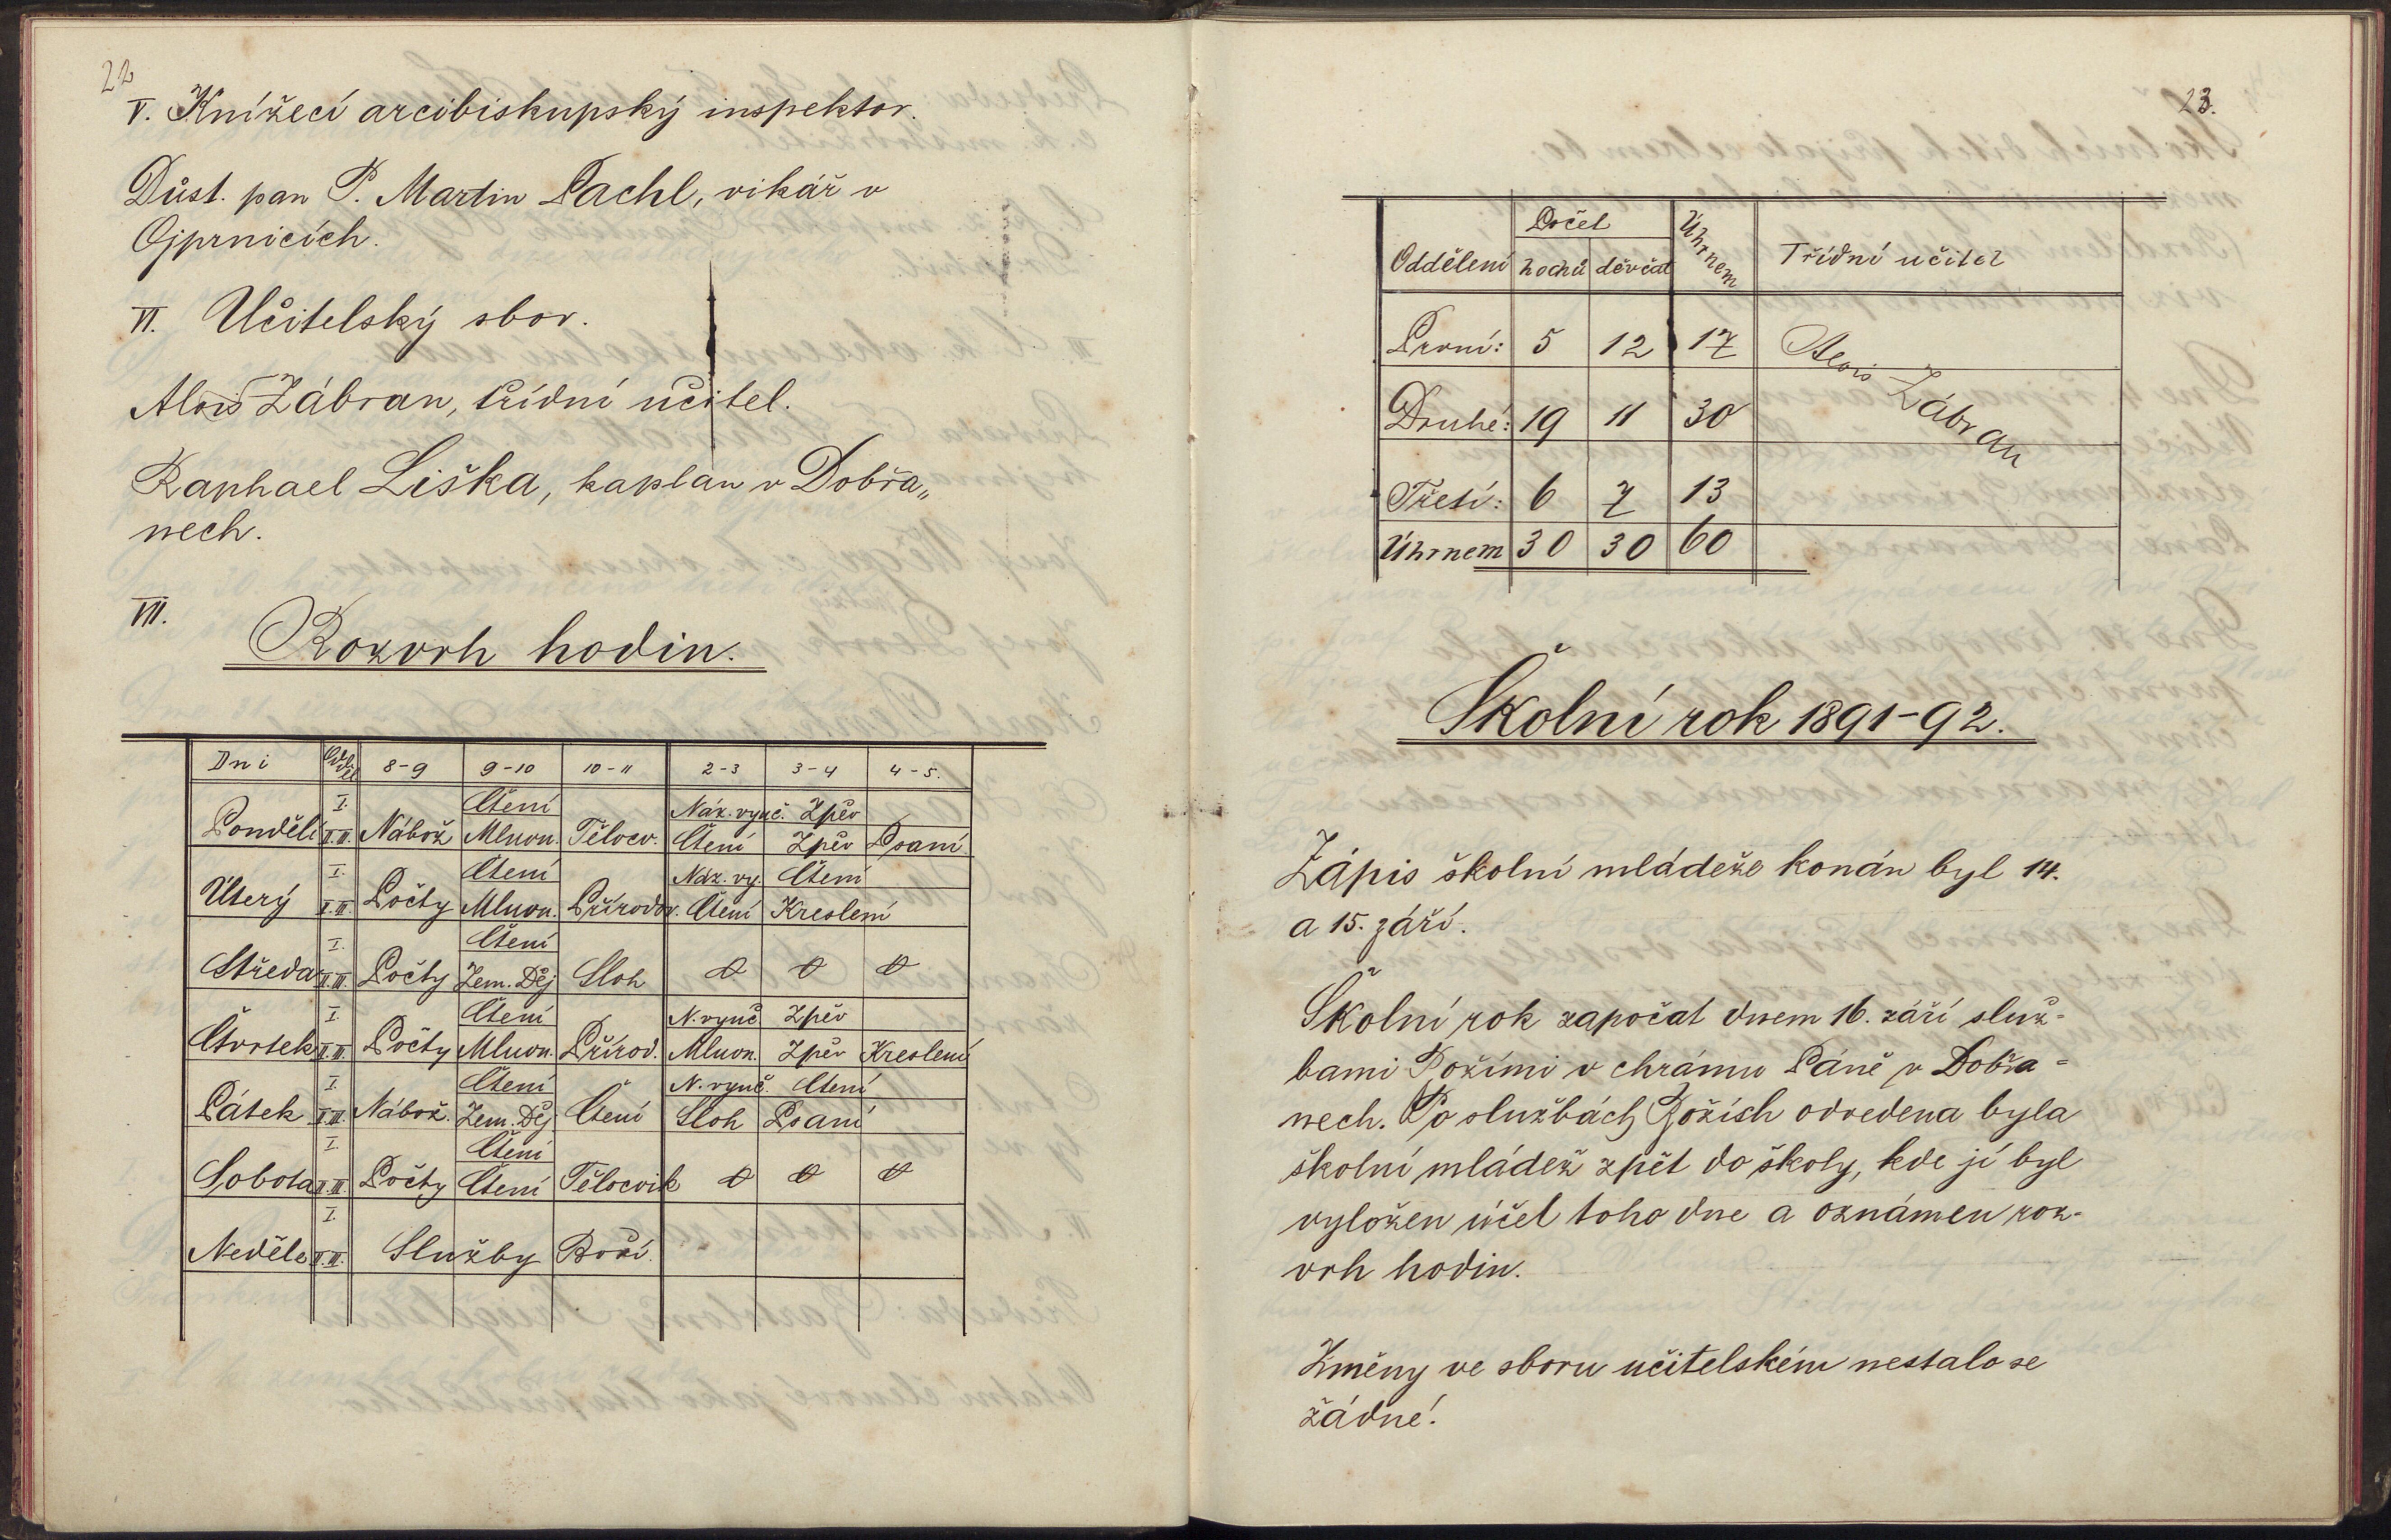 22
V. Knížecí arcibiskupský inspektor.
Důst. pan P. Martin Pachl, vikář v
Ojprnicích.
VI. Učitelský sbor.
Alois Zábran, třídní učitel.
Raphael Liška, kaplan v Dobřa„
nech.
VII.
Rozvrh hodin.
Dni Odděl 8-9 9-10 10-11 2-3 3-4 4-5.
I. Čtení Náz. vyuč. Zpěv
Pondělí II.III. Nábož Mluvn. Těloc. Čtení Zpěv Psaní
I. Čtení Náz. vy. Čtení
Úterý II.III. Počty Mluvn. Přírodov. Čtení Kreslení
I. Čtení
Středa II.III. Počty Zem. Děj Sloh
I. Čtení N. vyuč Zpěv
Čtvrtek II.III. Počty Mluvn. Přírod. Mluvn. Zpěv Kreslení
I. Čtení N. vyuč. Čtení
Pátek II.III. Nábož. Zem. Děj Čtení Sloh Psaní
I. Čtení
Sobota II.III. Počty Čtení Tělocvik
I.
Neděle II.III. Služby Boží.
23.
Počet
Oddělení hochů děvčat Úhrnem Třídní učitel
První: 5 12 17 Alois Zábran
Druhé: 19 11 30
Třetí: 6 7 13
Úhrnem 30 30 60
Školní rok 1891-92.
Zápis školní mládeže konán byl 14.
a 15. září.
Školní rok započat dnem 16. září služ-
bami Božími v chrámu Páně v Dobřa-
nech. Po službách Božích odvedena byla
školní mládež zpět do školy, kde jí byl
vyložen účel toho dne a oznámen roz-
vrh hodin.
Změny ve sboru učitelském nestalo se
žádné!